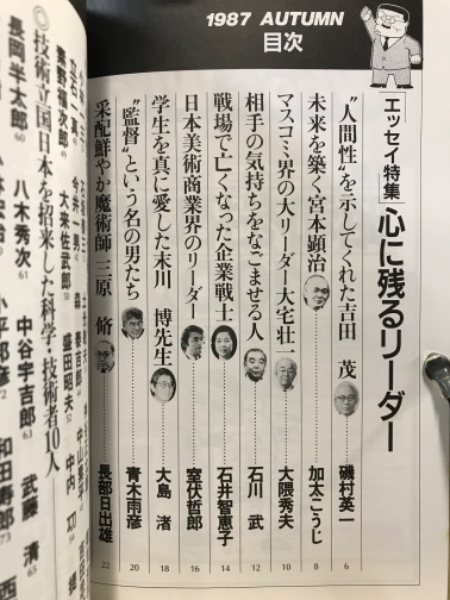 1987 AUTUMN
目次
エッセイ特集
心に残るリーダー
“人間性”を示してくれた吉田 茂 磯村英一 6
未来を築く宮本顕治 加太こうじ 8
マスコミ界の大リーダー大宅壮一 大隈秀夫 10
相手の気持ちをなごませる人 石川 武 12
戦場で亡くなった企業戦士 石井智恵子 14
日本美術商業界のリーダー 室伏哲郎 16
学生を真に愛した末川 博先生 大島 渚 18
“監督”という名の男たち 青木雨彦 20
采配鮮やか魔術師 三原 脩 長部日出雄 22
大来佐武郎 50
盛田昭夫 52
中内 㓛 54
◎技術立国日本を招来した科学・技術者10人
長岡半太郎 60
八木秀次 61
中谷宇吉郎 63
武藤 清 65
小平邦彦 72
和田寿郎 73